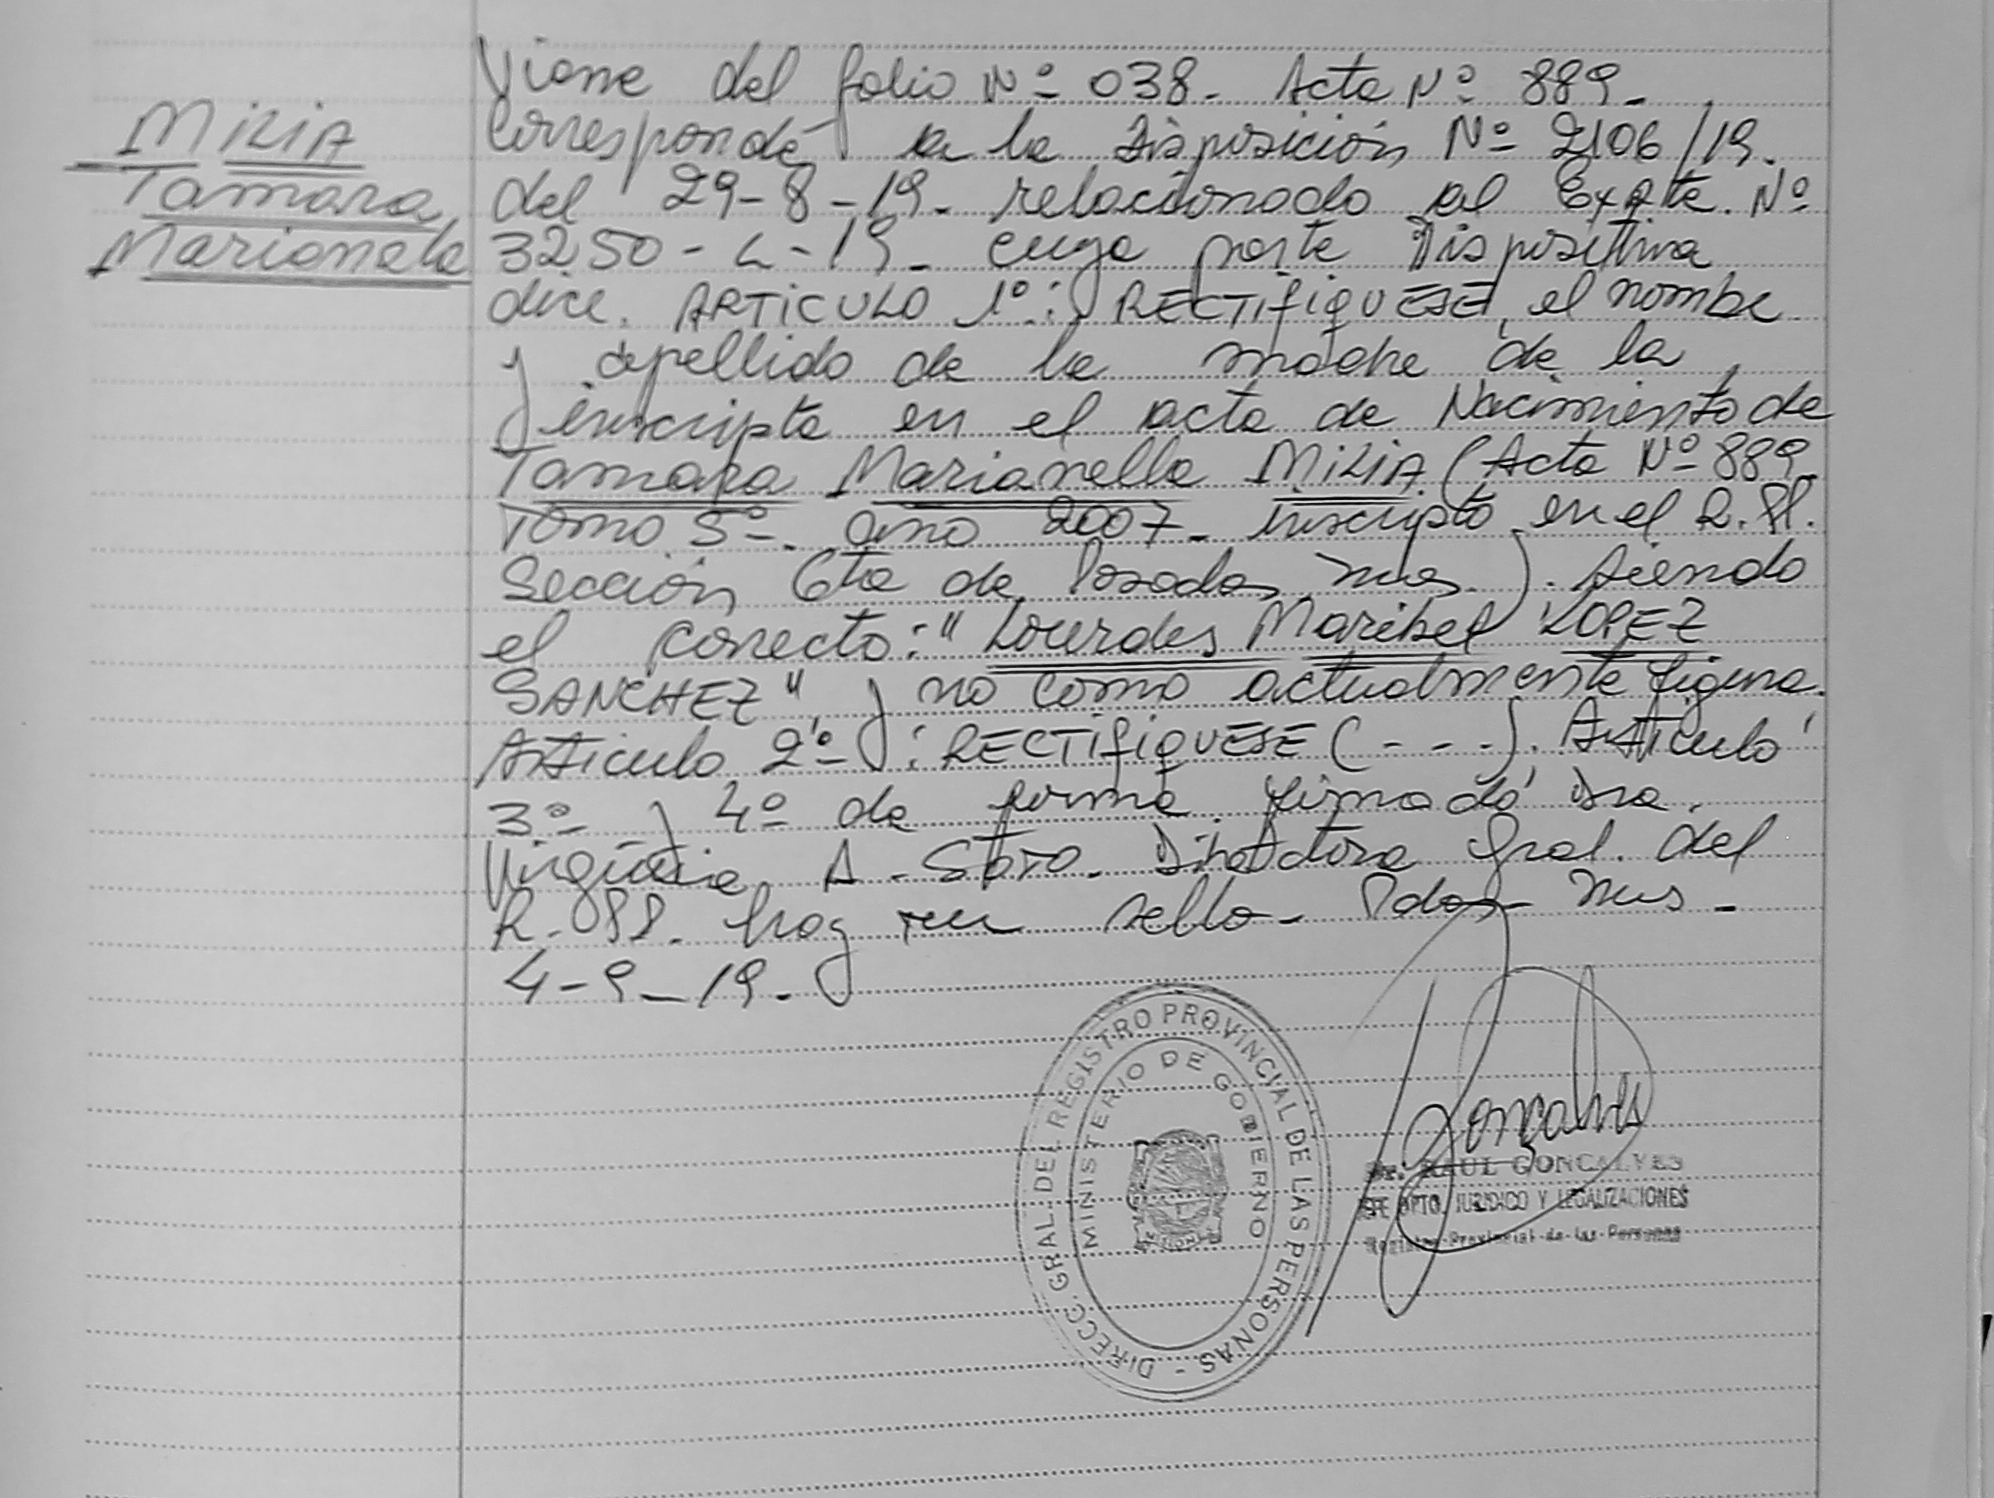 MILIA
Tamara
Marianela
Viene del folio Nº 038. Acta Nº 889.
Corresponde a la Disposición Nº 2106/19.
del 29-8-19. relacionado al Expte. Nº
3250-L-19. cuya parte Dispositiva
dice. ARTICULO 1º: RECTIFIQUESE, el nombre
y apellido de la madre de la
inscripta en el acta de Nacimiento de
Tamara Marianella MILIA (Acta Nº 889
Tomo 5º. año 2007. inscripto en el R.P.
Sección 6ta de Posadas Mnes). siendo
el correcto: "Lourdes Maribel LOPEZ
SANCHEZ", y no como actualmente figura.
Articulo 2º: RECTIFIQUESE (---). Articulo
3º y 4º de forma firmado Dra.
Virginia A. Soto. Directora Gral. del
R.PP. hay un sello. Pdas. Mnes.
4-9-19.
DIRECC. GRAL. DEL REGISTRO PROVINCIAL DE LAS PERSONAS -
MINISTERIO DE GOBIERNO
MISIONES
Goncalves
Dr. RAUL GONCALVES
JEFE DPTO. JURIDICO Y LEGALIZACIONES
Registro Provincial de las Personas